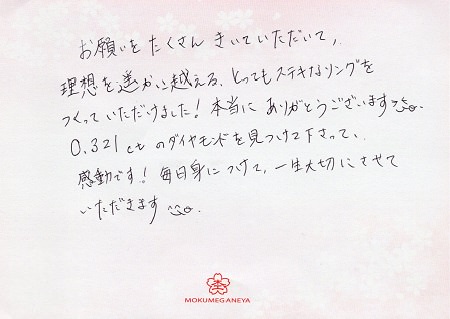 お願いをたくさんきいていただいて、
理想を遥かに越える、とってもステキなリングを
つくっていただけました！本当にありがとうございます
0.321ctのダイヤモンドを見つけて下さって、
感動です！毎日身につけて、一生大切にさせて
いただきます
MOKUMEGANEYA